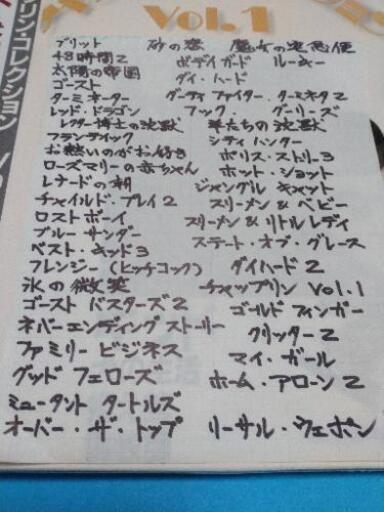 Vol.1
リン・コレクション
ブリット 砂の惑 魔女の宅急便
48時間2 ボディガード ルーキー
太陽の帝国 ダイ・ハード
ゴースト ターミネタ2
ターミネーター フック グーリーズ
レッド・ドラゴン 羊たちの沈黙
レクター博士の沈黙 シティハンター
フランティック ポリス・ストーリー3
お熱いのがお好き ホット・ショット
ローズマリーの赤ちゃん ジャングル キャット
レナードの朝 スリーメン&ベビー
チャイルド・プレイ2 スリーメン&リトルレディ
ロストボーイ ステート・オブ・グレース
ブルーサンダー
ベスト・キッド3 ダイハード2
フレンジー(ヒッチコック) チャップリン Vol.1
氷の微笑 ゴールドフィンガー
ゴーストバスターズ2 クリッター2
ネバーエンディングストーリー マイ・ガール
ファミリービジネス ホーム・アローン2
グッドフェローズ
ミュータント タートルズ
オーバー・ザ・トップ リーサル・ウェポン